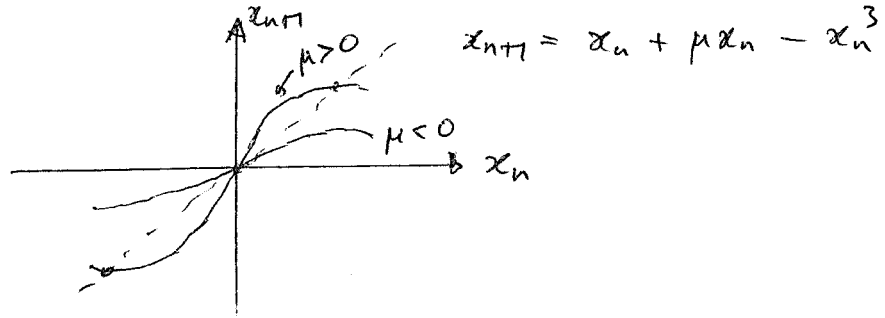 xₙ₊₁
xₙ₊₁ = xₙ + μxₙ - xₙ³
μ>0
μ<0
xₙ